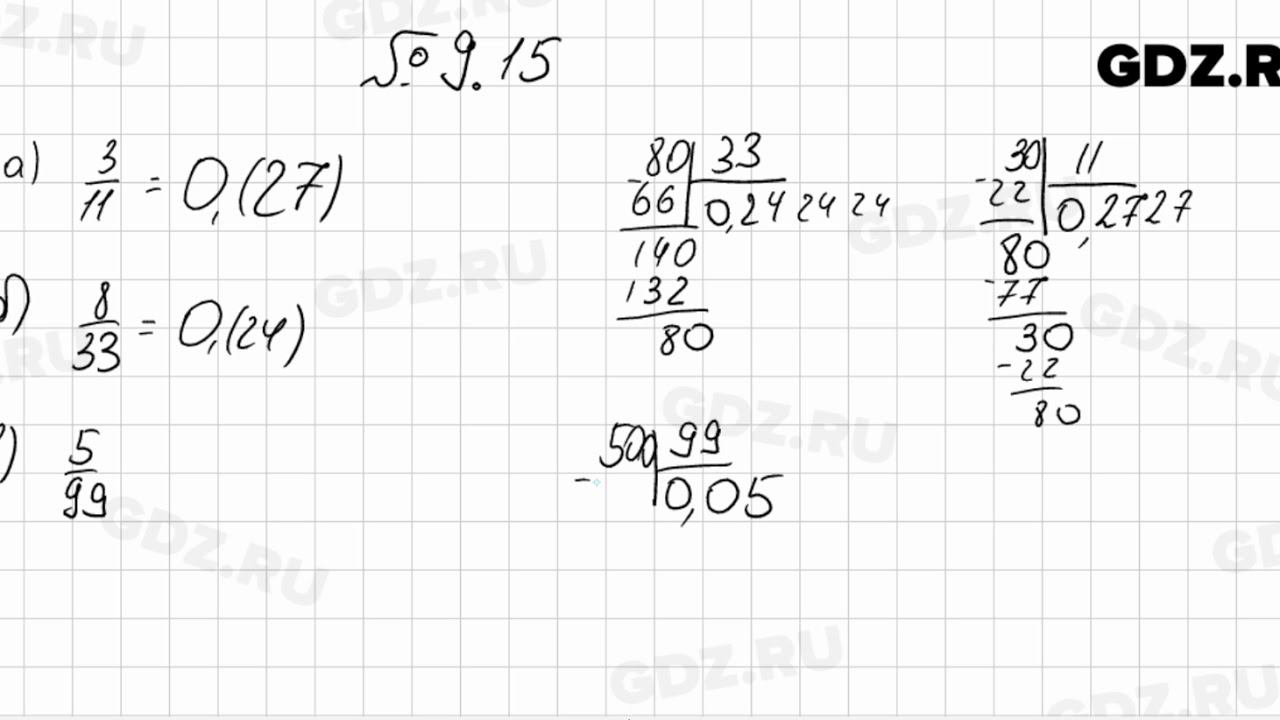 № 9.15
GDZ.R
а) 3/11 = 0,(27)
80 | 33
- 66 | 0,24 24 24
140
132
80
30 | 11
- 22 | 0,2727
80
- 77
30
- 22
80
б) 8/33 = 0,(24)
) 5/99
500 | 99
- | 0,05
GDZ.RU
GDZ.RU
GDZ.RU
GDZ.RU
GDZ.RU
GDZ.RU
GDZ.RU
GDZ.RU